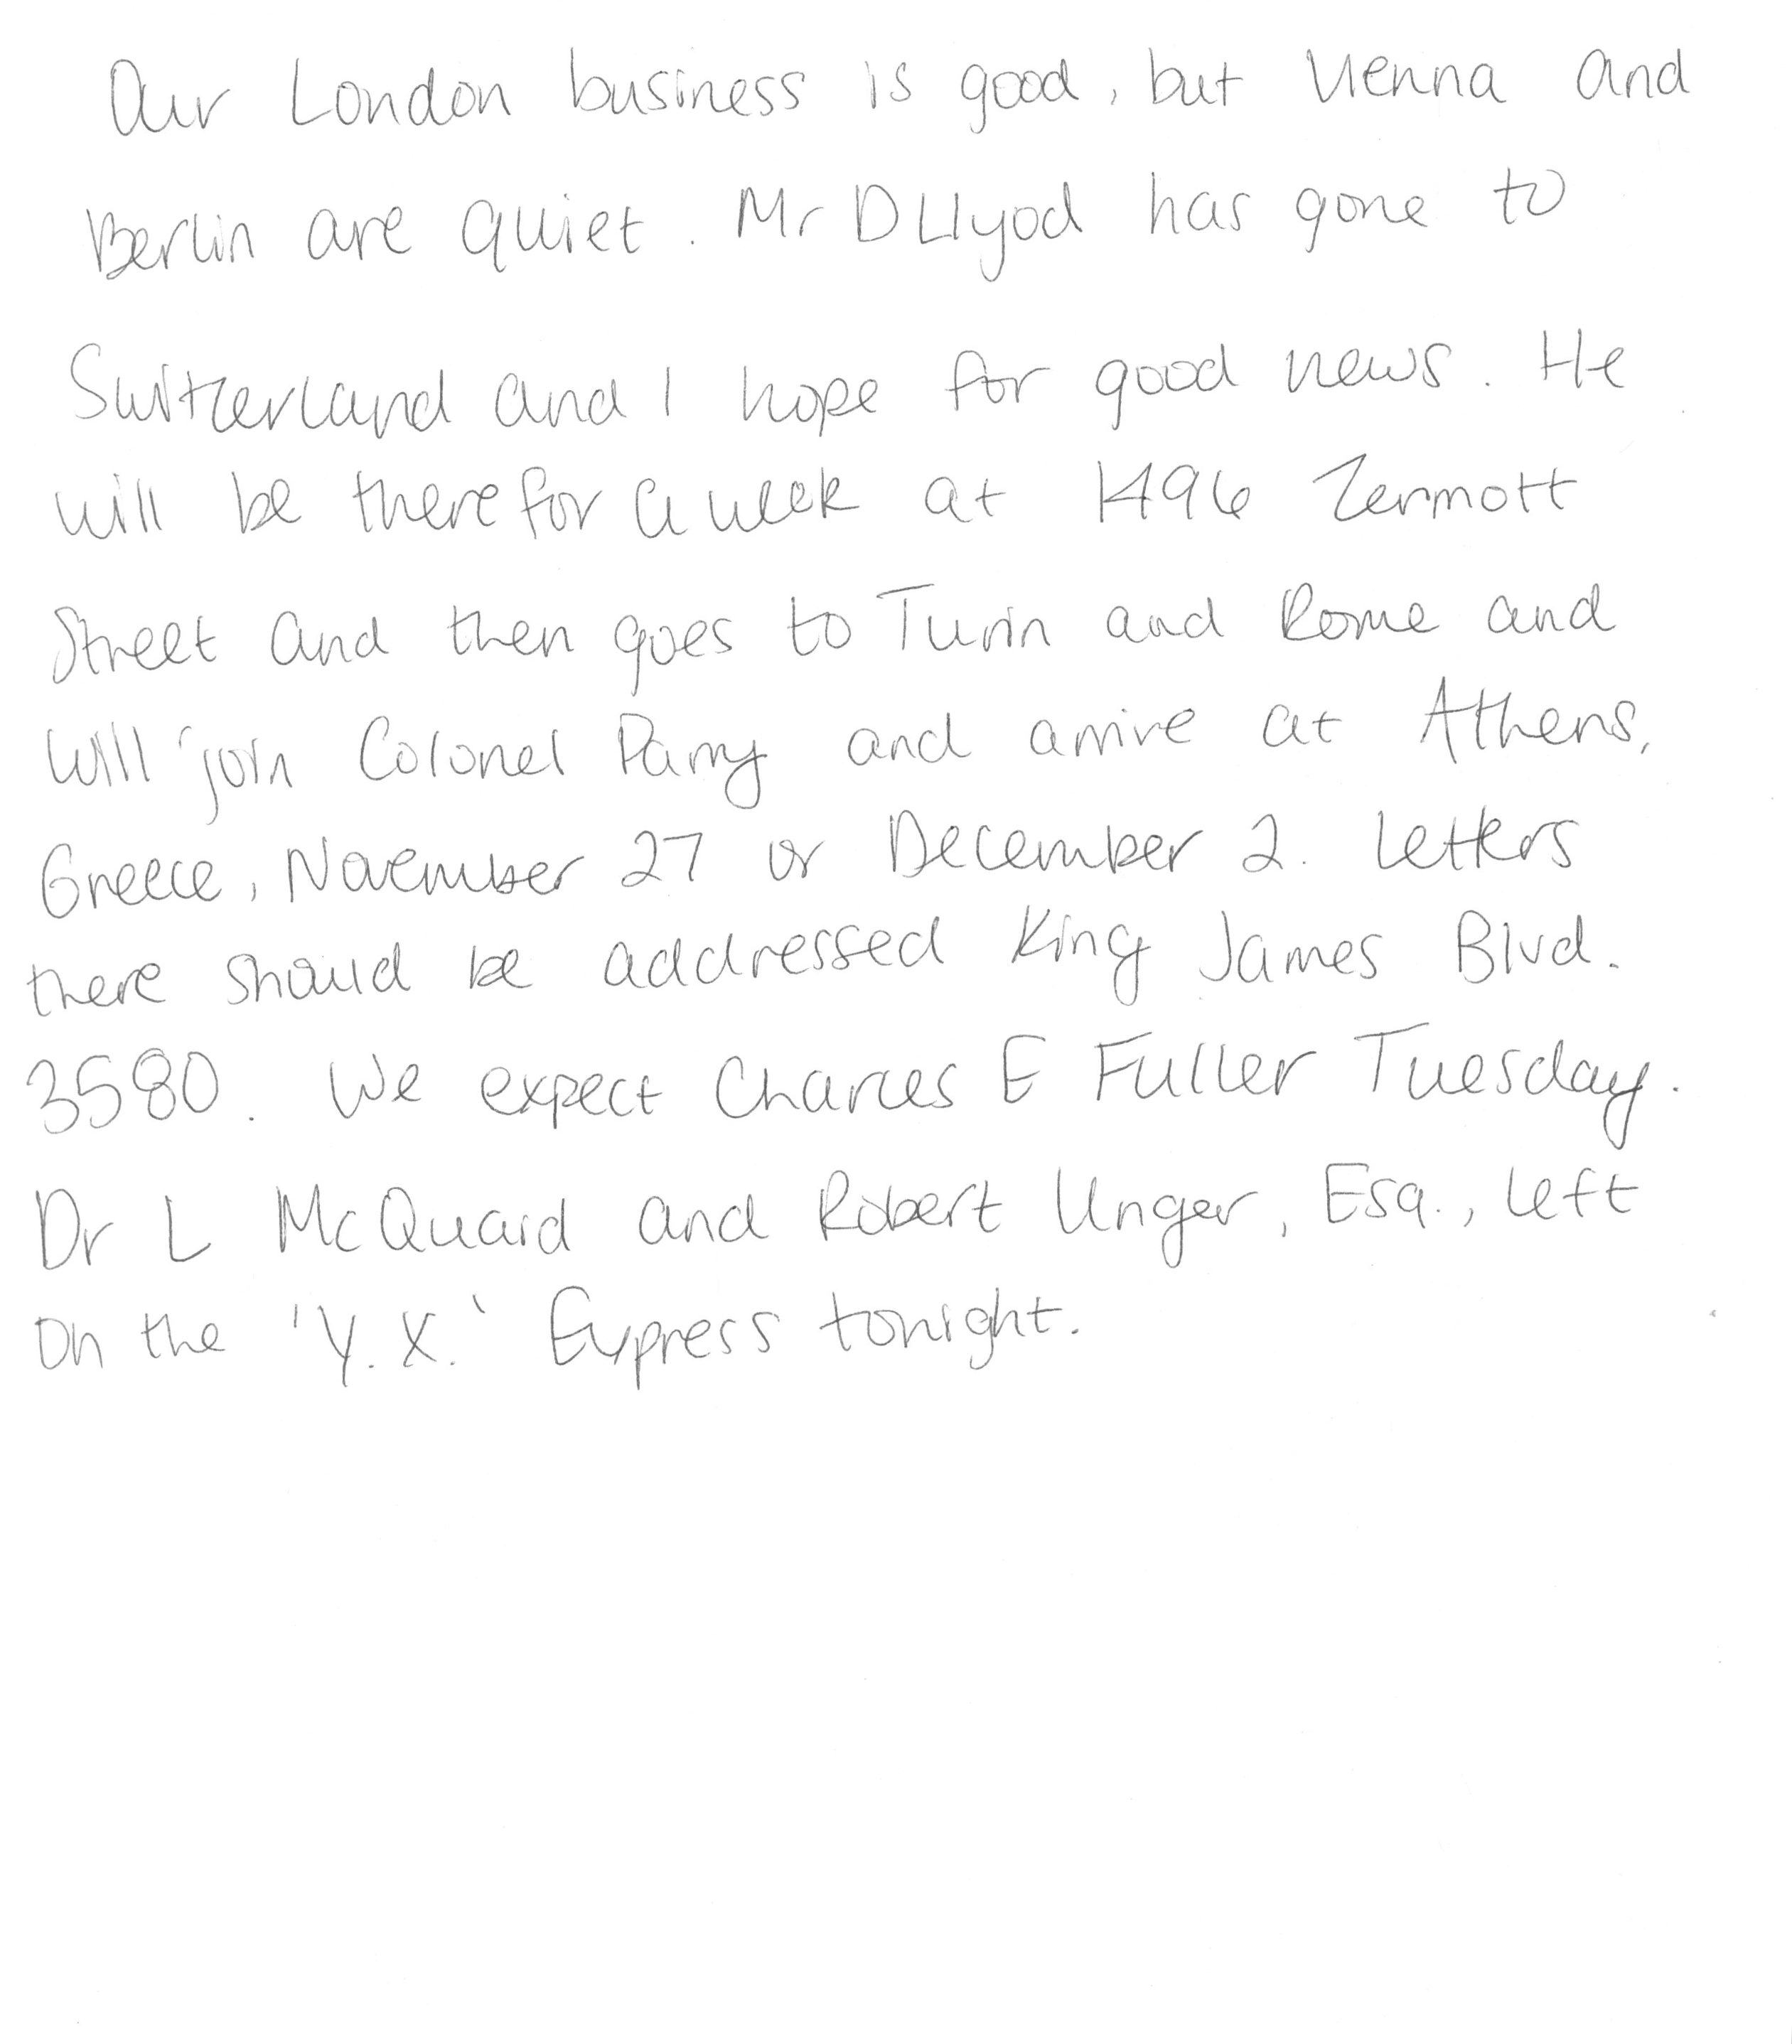 Our London business is good, but Vienna and
Berlin are quiet. Mr D Llyod has gone to
Switzerland and I hope for good news. He
will be there for a week at 1496 Zermott
Street and then goes to Turin and Rome and
will join Colonel Parry and arrive at Athens,
Greece, November 27 or December 2. Letters
there should be addressed King James Blvd.
3580. We expect Charles E Fuller Tuesday.
Dr L McQuaid and Robert Unger, Esq., left
on the 'Y.X.' Express tonight.